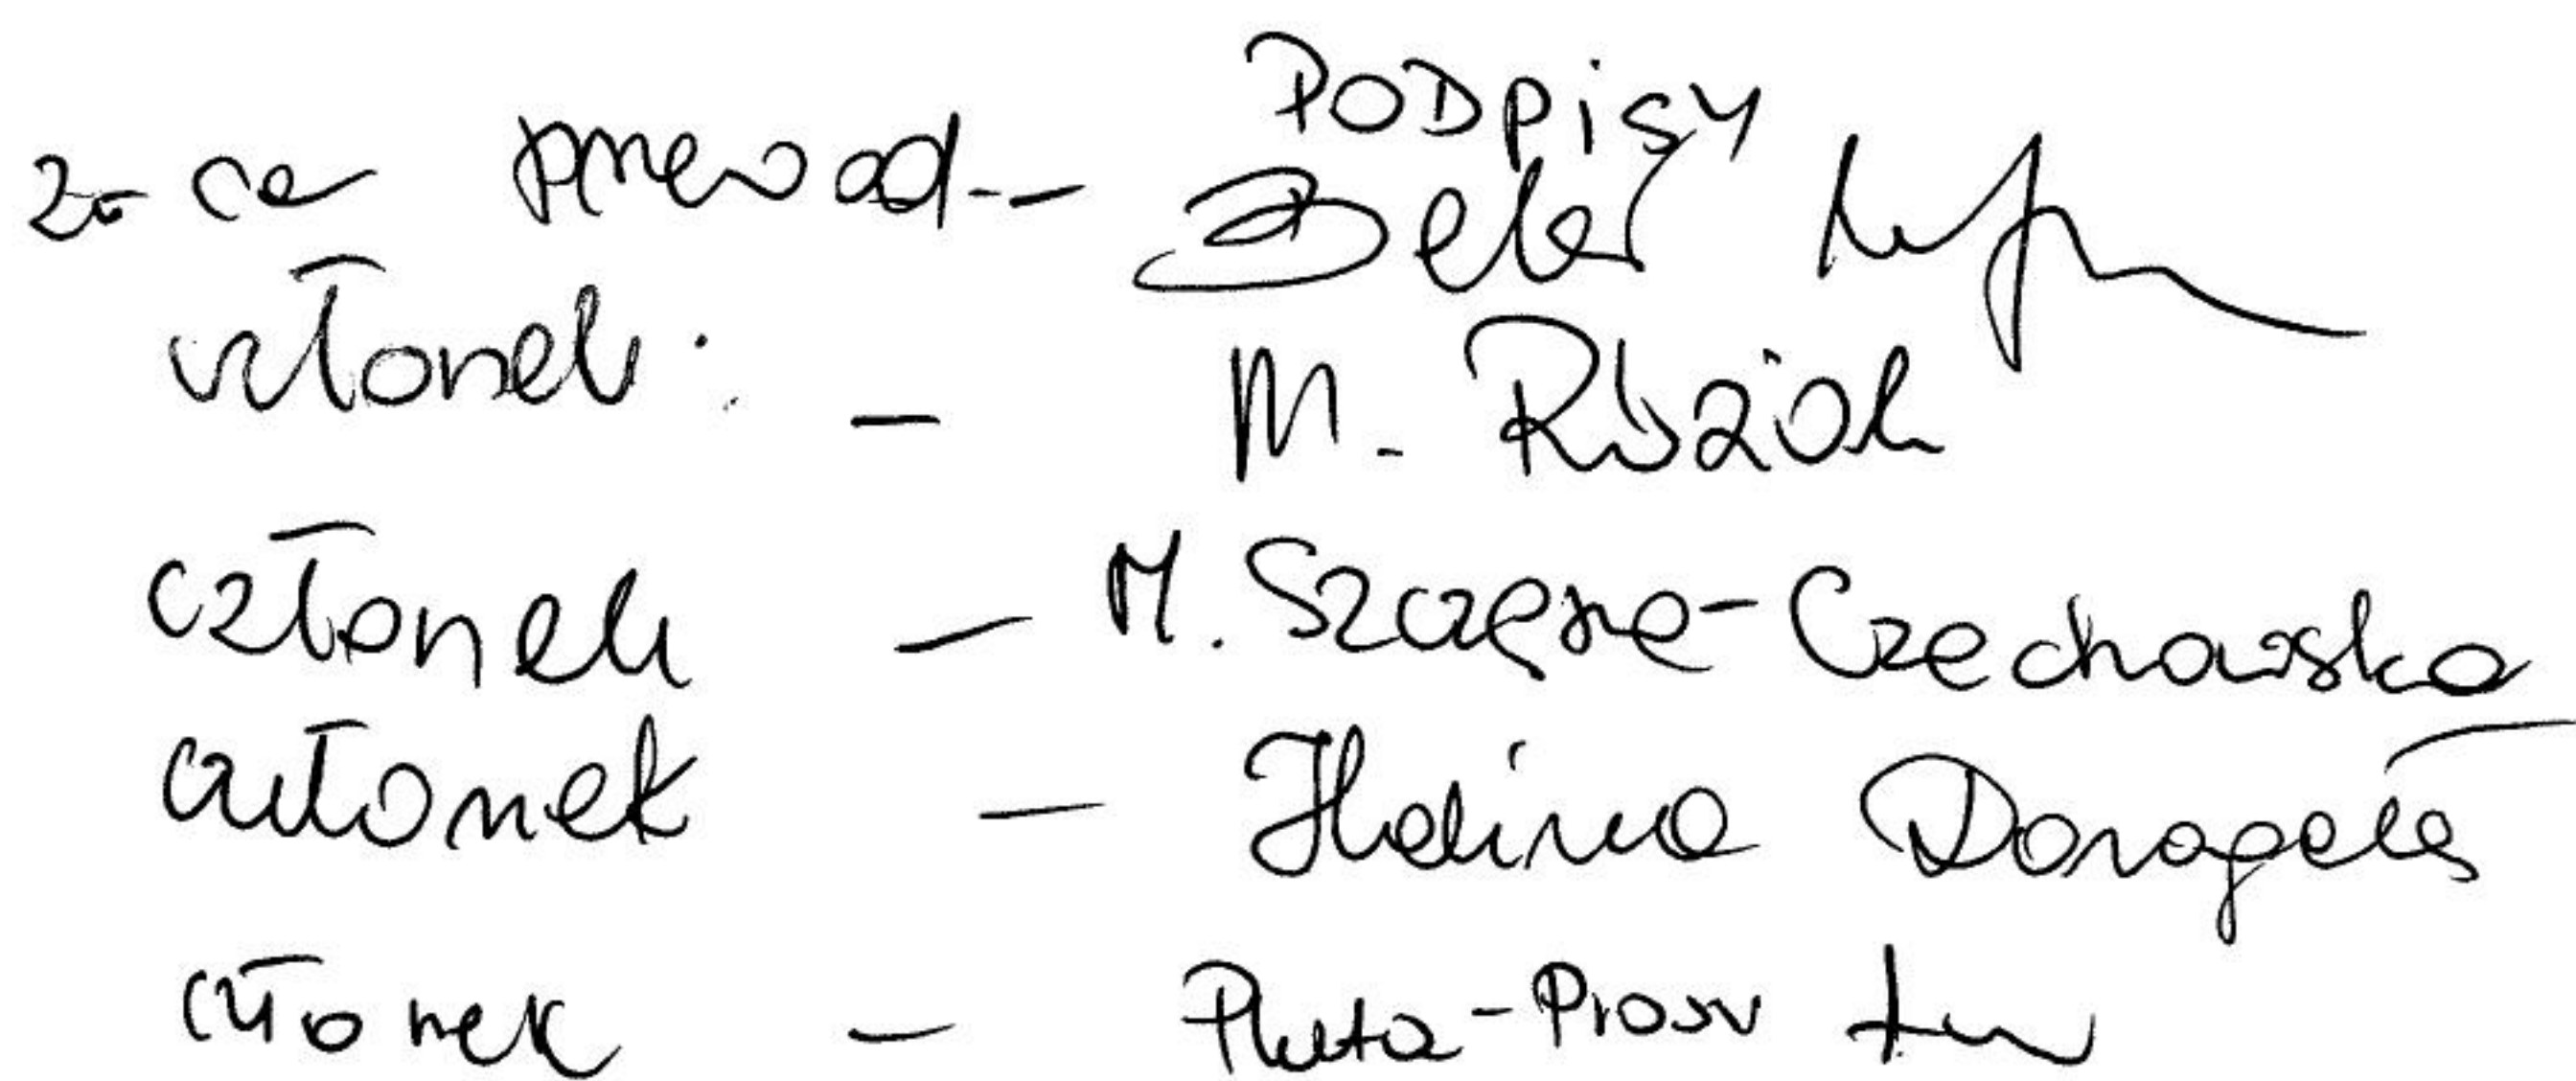 PODPISY
z-ca przewod. -
członek -
M. Róziok
członek - M. Szczęsna-Czechowska
członek - Halina
członek - Pluta-Prosv